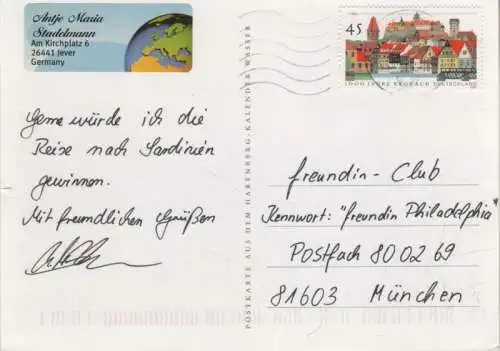 Antje Maria
Stadelmann
Am Kirchplatz 6
26441 Jever
Germany
45
1000 JAHRE KRONACH DEUTSCHLAND
Gerne würde ich die
Reise nach Sardinien
gewinnen.
Mit freundlichen Grüßen
POSTKARTE AUS DEM HARENBERG-KALENDER WASSER
freundin - Club
Kennwort: "freundin Philadelphia"
Postfach 80 02 69
81603 München